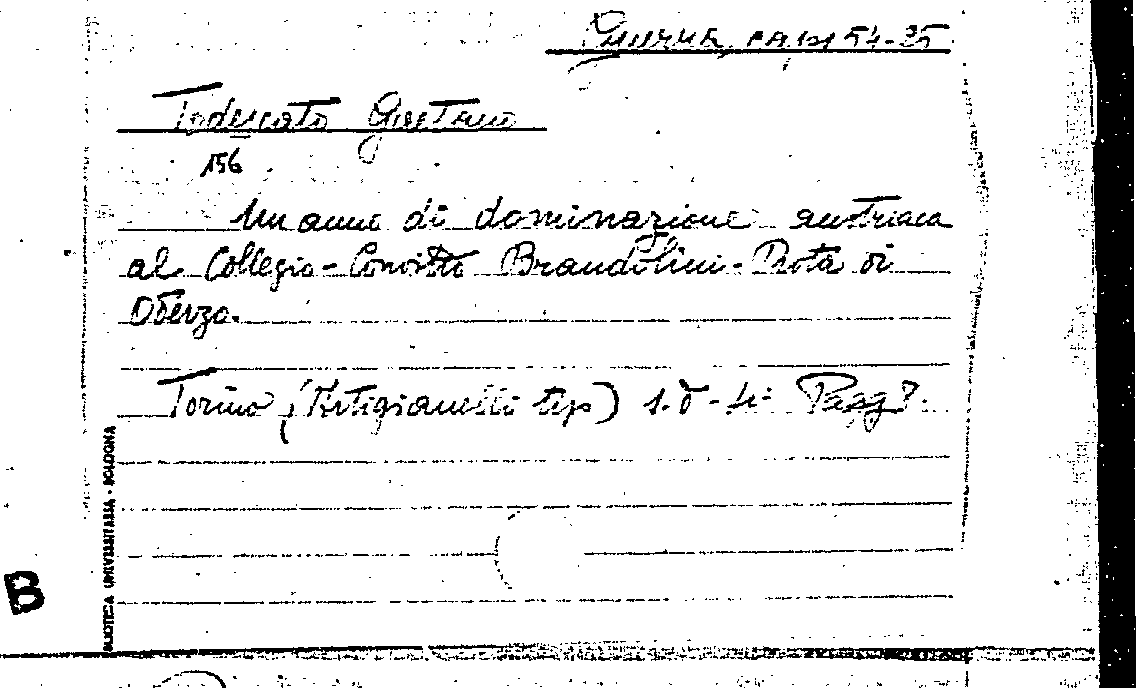 Guerra, capp 54-35
Todescato Gaetano
156
Un anno di dominazione austriaca
al Collegio-Convitto Brandolini-Rota di
Oderzo.
Torino (Artigianelli tip) s.d - 4º Pagg 8.
BIBLIOTECA UNIVERSITARIA - BOLOGNA
B